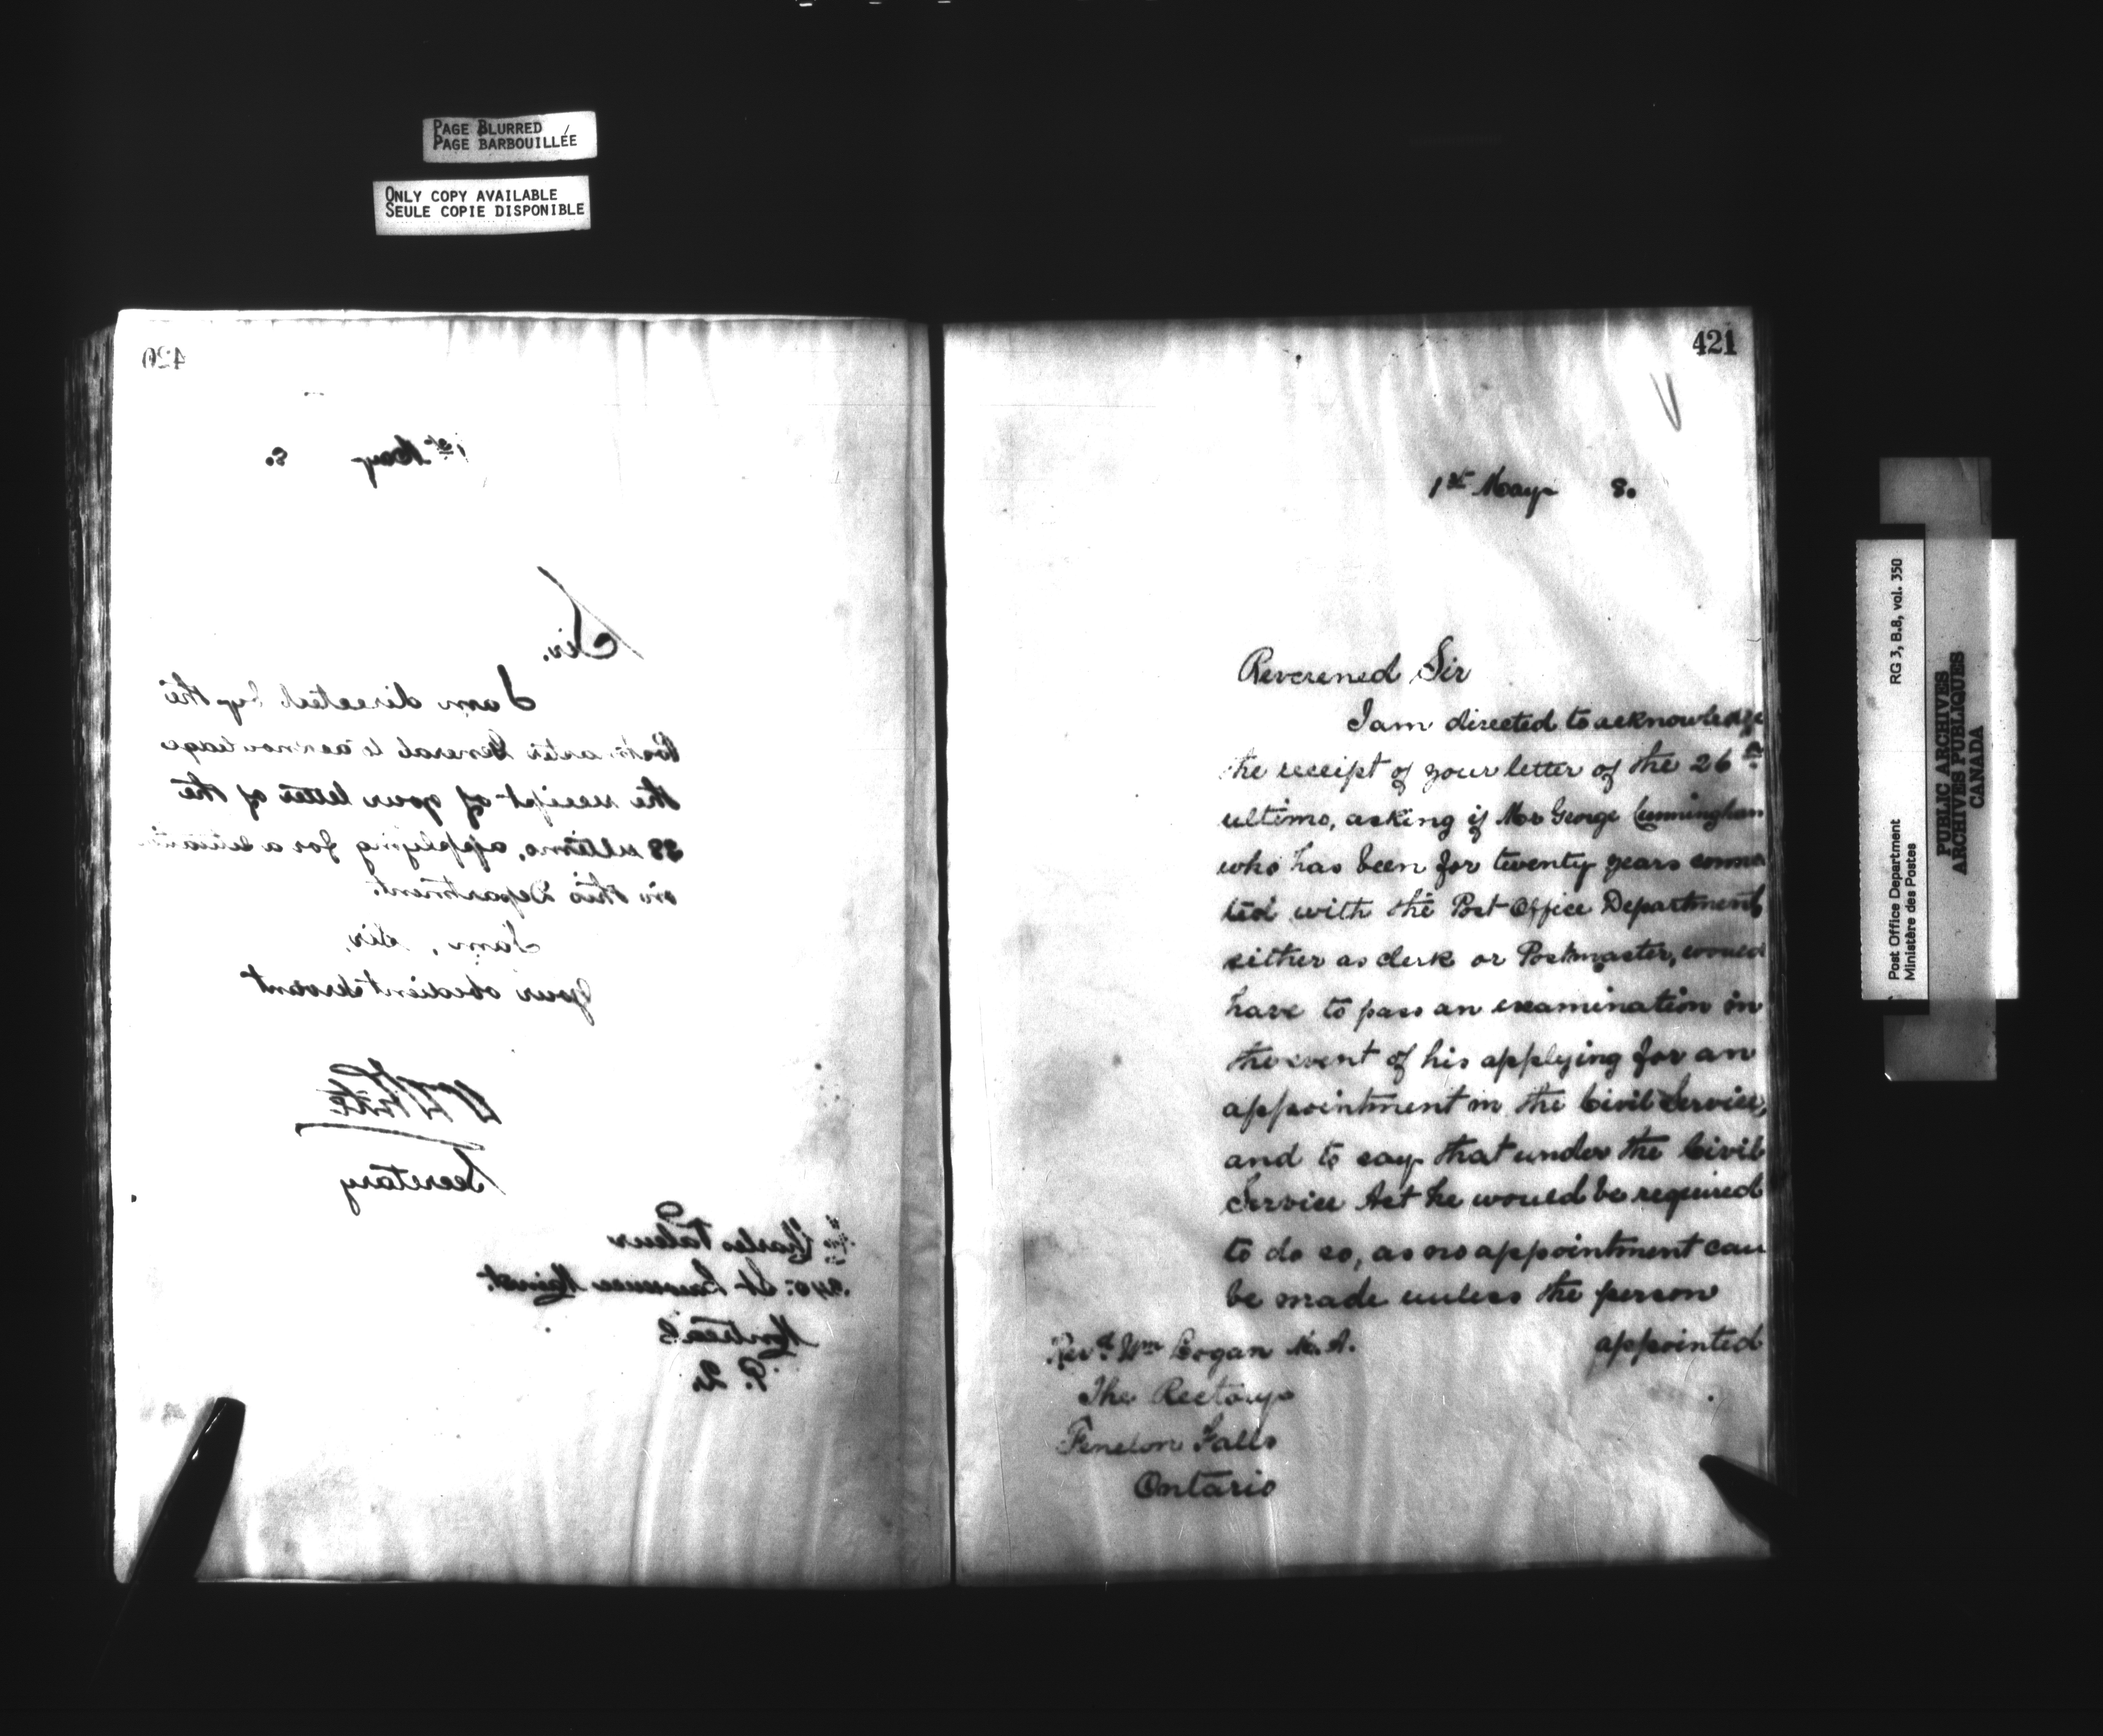 PAGE BLURRED
PAGE BARBOUILLÉE
ONLY COPY AVAILABLE
SEULE COPIE DISPONIBLE
420
1st May 8.
Sir.
I am directed by the
Postmaster General to acknowledge
the receipt of your letter of the
ultimo, applying for a situation
in this Department.
I am, Sir,
Your obedient Servant
W White
Secretary
Charles
St Lawrence Main St.
Montreal
P. Q.
421
1st May 8.
Reverened Sir
I am directed to acknowledge
the receipt of your letter of the 26th
ultimo, asking if Mr George Cunningham
who has been for twenty years connec
ted with the Post Office Department
either as clerk or Postmaster, would
have to pass an examination in
the event of his applying for an
appointment in the Civil Service,
and to say that under the Civil
Service Act he would be required
to do so, as no appointment can
be made unless the person
appointed
Revd. Wm Logan M.A.
The Rectory
Fenelon Falls
Ontario
Post Office Department RG 3, B.8, vol. 350
Ministère des Postes
PUBLIC ARCHIVES
ARCHIVES PUBLIQUES
CANADA